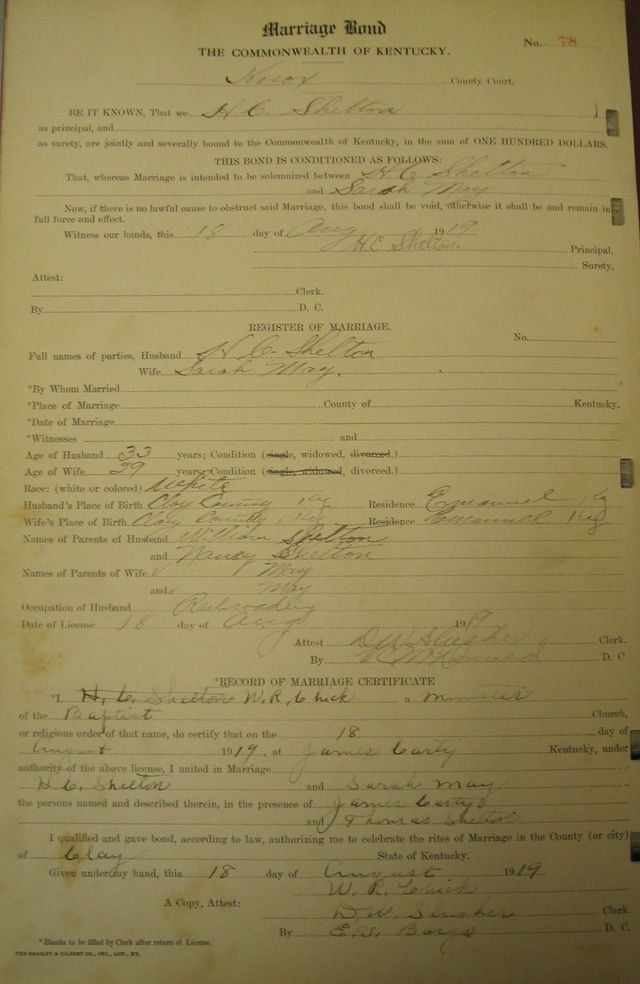 Marriage Bond
THE COMMONWEALTH OF KENTUCKY. No. 78
Knox County Court.
BE IT KNOWN, That we H. C. Shelton
as principal, and
as surety, are jointly and severally bound to the Commonwealth of Kentucky, in the sum of ONE HUNDRED DOLLARS.
THIS BOND IS CONDITIONED AS FOLLOWS:
That, whereas Marriage is intended to be solemnized between H. C. Shelton
and Sarah May
Now, if there is no lawful cause to obstruct said Marriage, this bond shall be void, otherwise it shall be and remain in
full force and effect.
Witness our hands, this 18 day of Aug 1919.
H. C. Shelton. Principal.
Surety.
Attest:
Clerk.
By D. C.
REGISTER OF MARRIAGE.
No.
Full names of parties, Husband H. C. Shelton
Wife Sarah May.
*By Whom Married
*Place of Marriage County of Kentucky.
*Date of Marriage
*Witnesses and
Age of Husband 33 years; Condition (single, widowed, divorced.)
Age of Wife 39 years; Condition (single, widowed, divorced.)
Race: (white or colored) White
Husband's Place of Birth Clay County, Ky Residence Emanuel Ky
Wife's Place of Birth Clay County, Ky. Residence Emanuel Ky
Names of Parents of Husband William Shelton
and Nancy Shelton
Names of Parents of Wife May
and May
Occupation of Husband Railroading
Date of License 18 day of Aug 1919
Attest D. W. Slusher Clerk.
By D. C
*RECORD OF MARRIAGE CERTIFICATE
*I, H. C. Shelton W. R. Chick a minister
of the Baptist Church,
or religious order of that name, do certify that on the 18 day of
August 1919, at James Carty Kentucky, under
authority of the above license, I united in Marriage
H. C. Shelton and Sarah May
the persons named and described therein, in the presence of James Carty
and Thomas Shelton
I qualified and gave bond, according to law, authorizing me to celebrate the rites of Marriage in the County (or city)
of Clay State of Kentucky.
Given under my hand, this 18 day of August 1919
W. R. Chick
A Copy, Attest: D. W. Slusher Clerk.
By D. C.
*Blanks to be filled by Clerk after return of License.
THE BRADLEY & GILBERT CO., INC., LOU., KY.